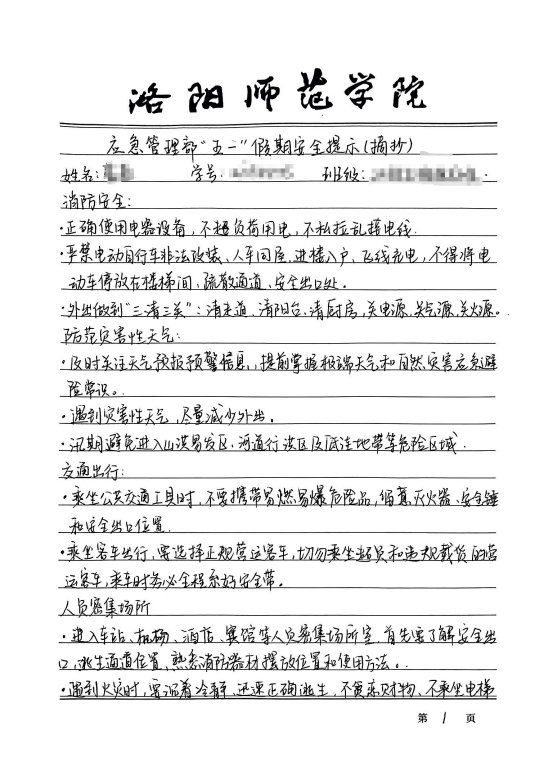 洛阳师范学院
应急管理部“五一”假期安全提示(摘抄)
姓名: 学号: 班级:
消防安全:
·正确使用电器设备,不超负荷用电,不私拉乱接电线.
·严禁电动自行车非法改装、人车同屋、进楼入户、飞线充电,不得将电
动车停放在楼梯间、疏散通道、安全出口处。
·外出做到“三清三关”:清走道、清阳台、清厨房,关电源、关气源、关火源。
防范灾害性天气:
·及时关注天气预报预警信息,提前掌握极端天气和自然灾害应急避
险常识。
·遇到灾害性天气,尽量减少外出。
·汛期避免进入山洪易发区、河道行洪区及低洼地带等危险区域.
交通出行:
·乘坐公共交通工具时,不要携带易燃易爆危险品,留意灭火器、安全锤
和安全出口位置.
·乘坐客车出行,需选择正规营运客车,切勿乘坐超员和违规载货的营
运客车,乘车时务必全程系好安全带。
人员密集场所
·进入车站、机场、酒店、宾馆等人员密集场所室,首先要了解安全出
口、逃生通道位置,熟悉消防器材摆放位置和使用方法。
·遇到火灾时,要沉着冷静、迅速正确逃生,不贪恋财物、不乘坐电梯
第 1 页